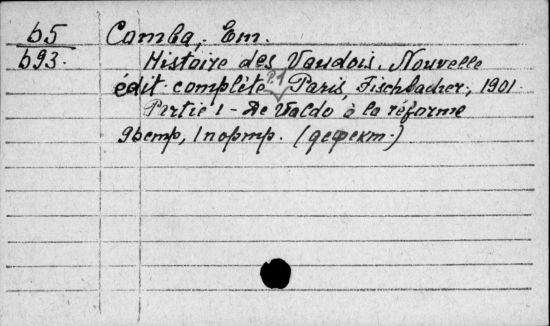 b5 Comba, Em.
b93. Histoire des Vaudois. Nouvelle
édit. complète P.1 Paris, Fischbacher, 1901.
Partie 1 - De Valdo à la réforme
9ветр, 1 портр. (дефект.)